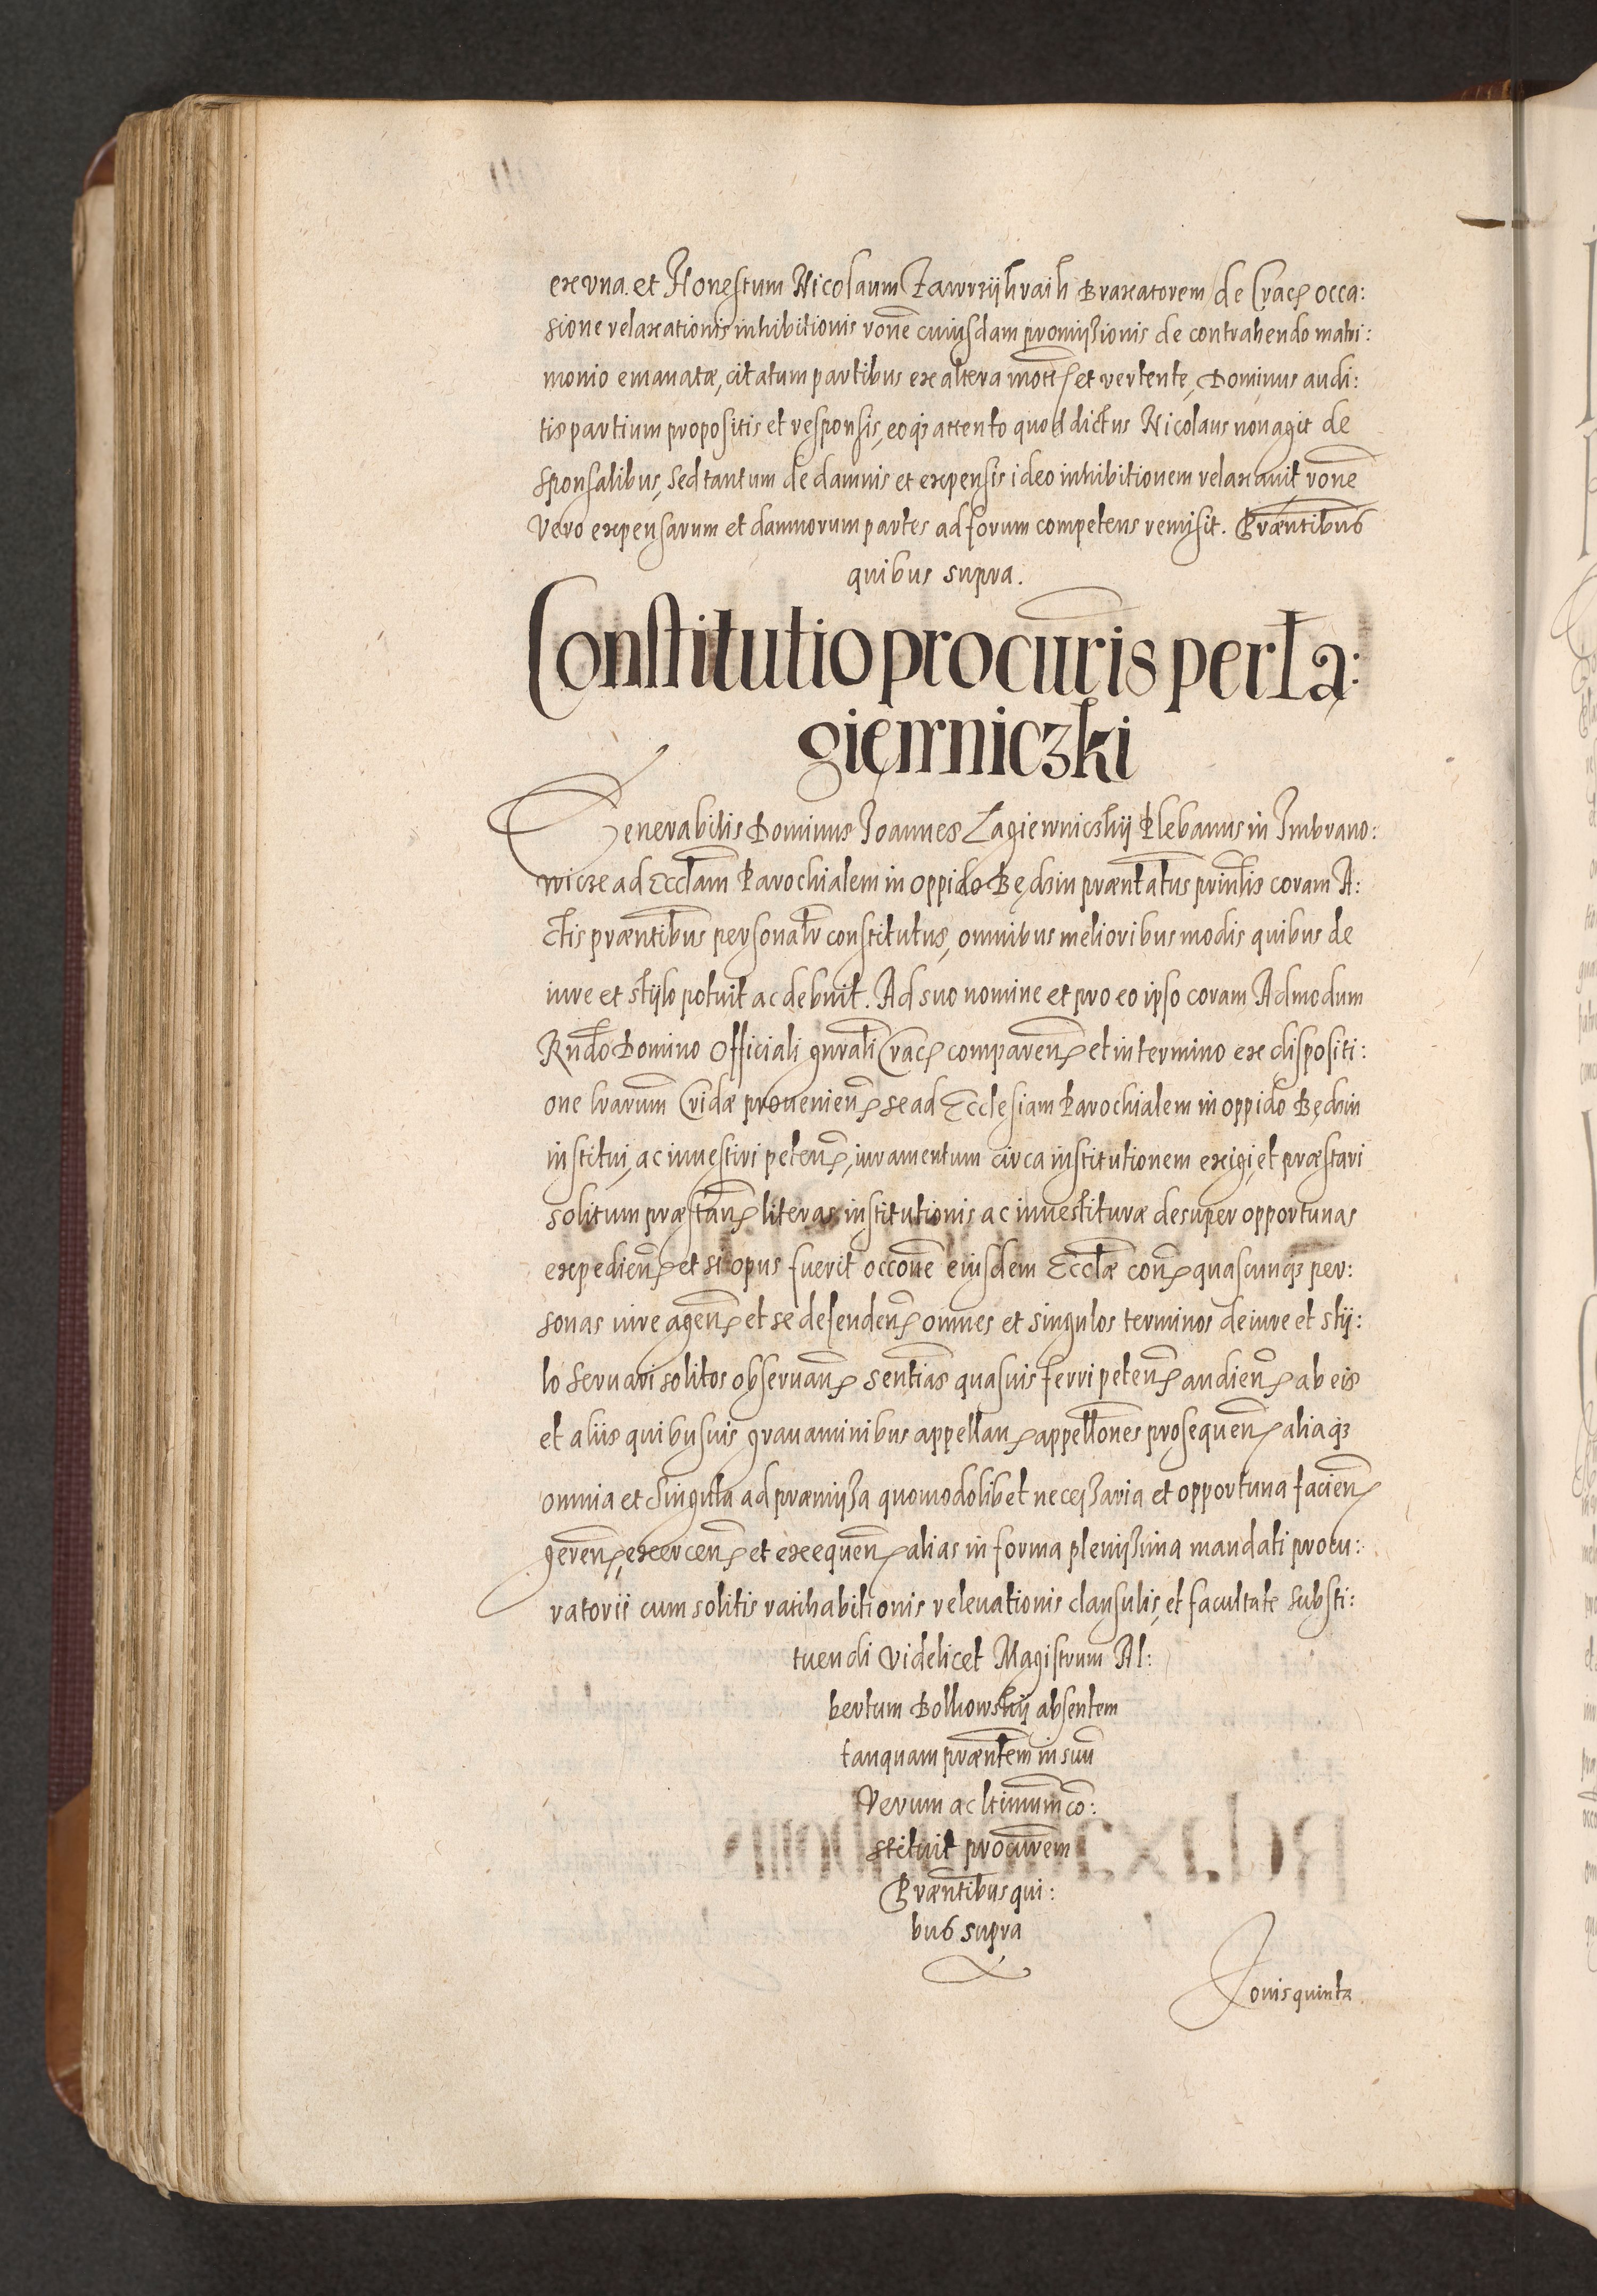 ex vna. et Honestum Nicolaum Braxatorem de Crac[ occa:
sione relaxationis inhibitionis rone cuiusdam promissionis de contrahendo matri:
monio emanatæ, citatum partibus ex altera et vertente, Dominus audi:
tis partium propositis et responsis, eoq3 attento quod dictus Nicolaus non agit de
sponsalibus, sed tantum de damnis et expensis ideo inhibitionem relaxauit, rone
Vero expensarum et damnorum partes ad forum competens remisit. Præntibus
quibus supra.
Constitutio procuris per La:
giewniczki
Venerabilis Dominus Joannes Lagiewniczkij Plebanus in Imbramo:
wicze ad Eccłam Parochialem in oppido Będzin præntatus printis coram A:
ctis præntibus personalr constitutus, omnibus melioribus modis quibus de
iure et stijlo potuit ac debuit. Ad suo nomine et pro eo ipso coram Admodum
Rndo Domino Officiali gnrali Crac[ comparen[ et in termino ex dispositi:
one lrarum Cridæ prouenien[ se ad Ecclesiam Parochialem in oppido Będzin
institui, ac inuestiri peten[, iuramentum circa institutionem exigi, et præstari
solitum præstan[ literas institutionis ac inuestituræ desuper opportunas
expedien[ et si opus fuerit occone eiusdem Ecclæ con[ quascunq3 per:
sonas iure agen[ et se defenden[ omnes et singulos terminos de iure et stij:
lo seruari solitos obseruan[ sentias quasuis ferri peten[ audien[ ab eis
et aliis quibusuis grauaminibus appellan[ appellones prosequen[ aliaq3
omnia et singula ad præmissa quomodolibet necessaria et opportuna facien[
geren[, exercen[ et exequen[ alias in forma plenissima mandati procu:
ratorii cum solitis ratihabitionis releuationis clausulis, et facultate substi:
tuendi Videlicet Magistrum Al:
bertum absentem
tanquam præntem in suu
Verum ac ltimum co:
stituit procurem
Præntibus qui:
bus supra
Jouis quinta